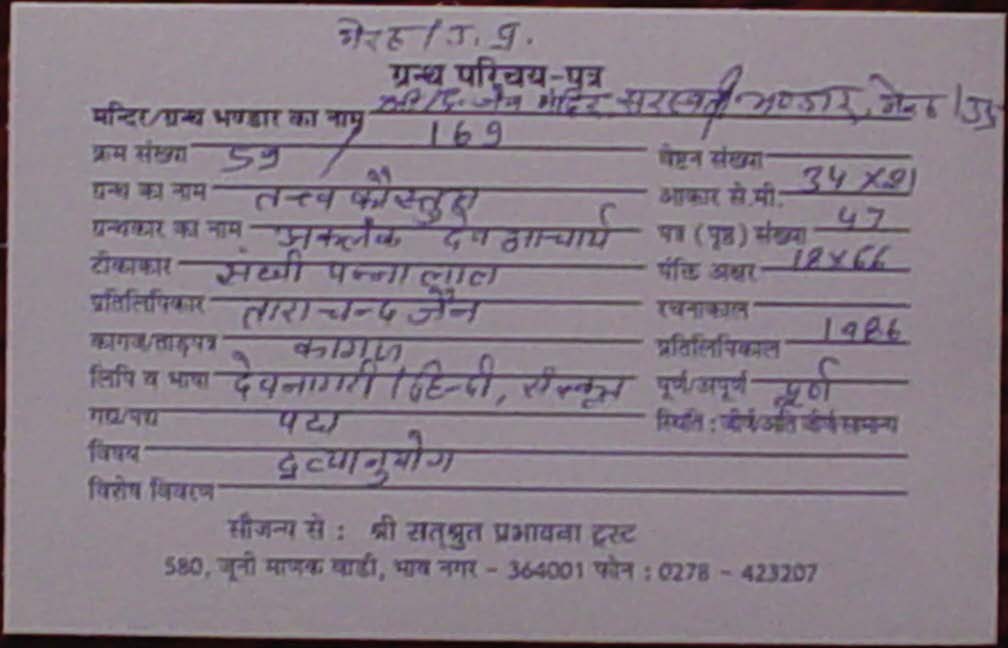 मेरठ / उ. प्र.
ग्रन्थ परिचय-पत्र
मन्दिर/ग्रन्थ भण्डार का नाम श्री दि. जैन मंदिर सरस्वती भण्डार, मेरठ / उ.प्र.
169
क्रम संख्या 59 वेष्टन संख्या
ग्रन्थ का नाम तत्त्व कौस्तुभ आकार से.मी. 34 x 21
ग्रन्थकार का नाम अकलंक देव आचार्य पत्र (पृष्ठ) संख्या 47
टीकाकार संघी पन्नालाल पंक्ति अक्षर 18 x 66
प्रतिलिपिकार ताराचन्द जैन रचनाकाल
कागज/ताड़पत्र कागज प्रतिलिपिकाल 1986
लिपि व भाषा देवनागरी / हिन्दी, संस्कृत पूर्ण/अपूर्ण पूर्ण
गद्य/पद्य पद्य स्थिति : जीर्ण/अति जीर्ण/सामान्य
विषय द्रव्यानुयोग
विशेष विवरण
सौजन्य से : श्री सत्श्रुत प्रभावना ट्रस्ट
580, जूनी माणक वाडी, भाव नगर - 364001 फोन : 0278 - 423207